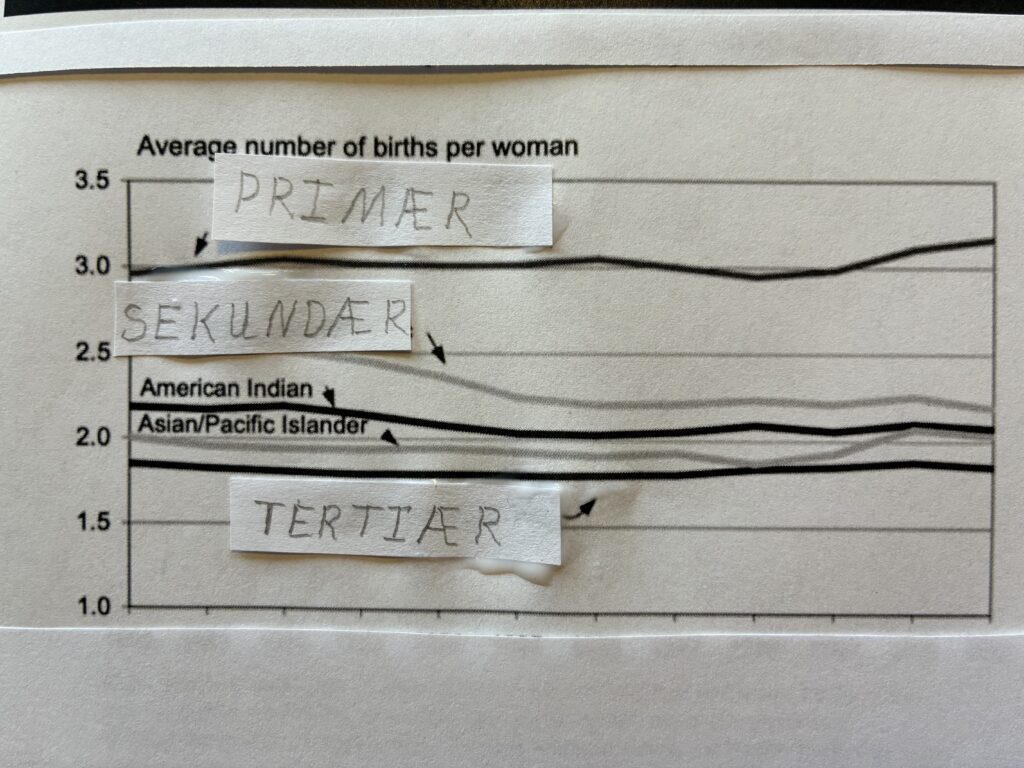 Average number of births per woman
3.5
PRIMÆR
3.0
SEKUNDÆR
2.5
American Indian
Asian/Pacific Islander
2.0
TERTIÆR
1.5
1.0